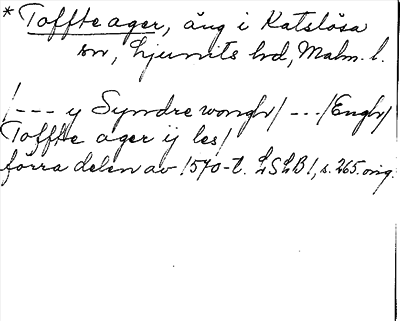 * Toffte ager, äng i Katslösa
sn, Ljunits hd, Malm. l.
/--- y Syndre wongh/ --- /Engh/
Toffte ager ij les/
förra delen av 1570-t. LSLB 1, s. 265. orig.